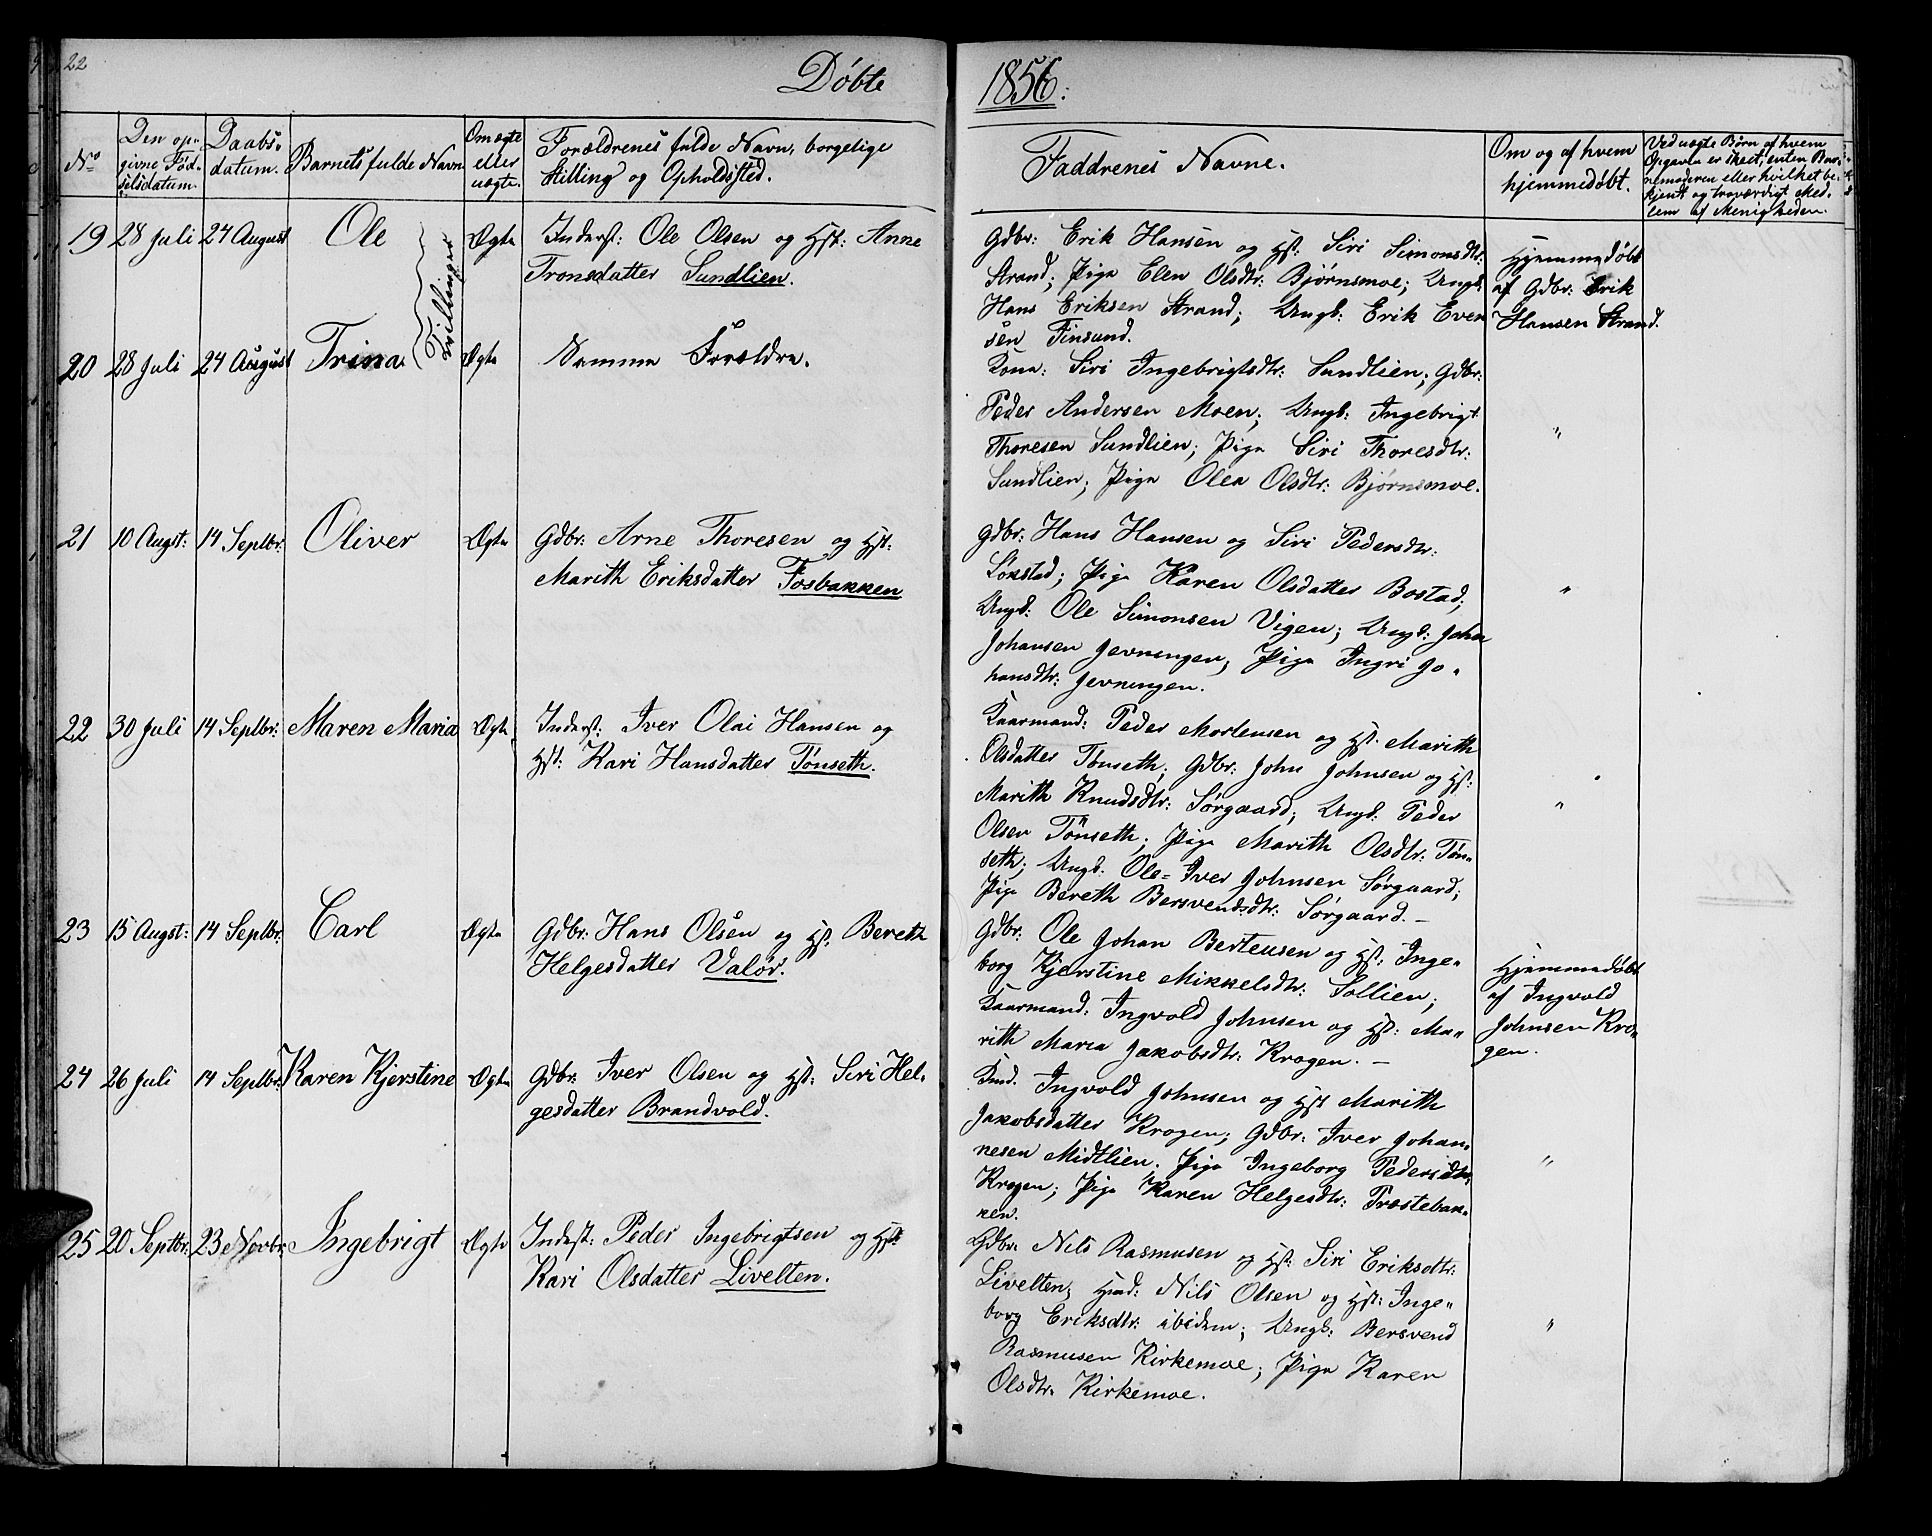 22
Døbte
1856.
No
Den op-
givne Fød-
selsdatum.
Daabs-
datum.
Barnets fulde Navn
Om ægte
eller
uægte.
Forældrenes fulde Navn, borgelige
Stilling og Opholdssted.
Faddrenes Navne.
Om og af hvem
hjemmedøbt.
Ved uægte Børn af hvem
Opgaven er skeet, enten Bar-
nemoderen eller hvilket be-
kjendt og troværdigt Med-
lem af Menigheden.
19 28 Juli 24 August Ole Ægte Inderst: Ole Olsen og Hst: Anne
Tronsdatter Sundlien.
Tvillinger
Gdbr: Erik Hansen og Hst: Siri Simonsdtr:
Strand; Pige Elen Olsdtr: Bjørnsmoe; Ungk:
Hans Eriksen Strand; Ungk: Erik Even
sen Finsund.
Hjemmedøbt
af Gdbr: Erik
Hansen Strand.
20 28 Juli 24 August Trina Ægte Samme Forældre.
Kone: Siri Ingebrigtsdtr: Sundlien; Gdbr:
Peder Andersen Moen; Ungk: Ingebrigt
Thoresen Sundlien; Pige Siri Thoresdtr:
Sundlien; Pige Olea Olsdtr: Bjørnsmoe.
"
21 10 Augst: 14 Septbr: Oliver Ægte Gdbr: Arne Thoresen og Hst:
Marith Eriksdatter Fosbakken
Gdbr: Hans Hansen og Siri Pedersdtr:
Løkstad; Pige Karen Olsdatter Bostad;
Ungk: Ole Simonsen Vigen; Ungk: John
Johansen Jevningen; Pige Ingri Jo-
hansdtr: Jevningen.
"
22 30 Juli 14 Septbr: Maren Maria Ægte Inderst: Iver Olai Hansen og
Hst: Kari Hansdatter Tønseth.
Kaarmand: Peder Mortensen og Hst. Marith
Olsdatter Tønseth; Gdbr: John Johnsen og Hst:
Marith Knudsdtr: Sørgaard; Ungk: Peder
Olsen Tönseth; Pige Marith Olsdtr: Tøn-
seth; Ungk. Ole-Iver Johnsen Sørgaard;
Pige Bereth Bersvendsdtr: Sørgaard. -
"
23 15 Augst: 14 Septbr: Carl Ægte Gdbr: Hans Olsen og Hst. Bereth
Helgesdatter Valør.
Gdbr: Ole Johan Berteusen og Hst: Inge-
borg Kjerstine Mikkelsdtr: Sollien;
Kaarmand: Ingvold Johnsen og Hst: Ma-
rith Maria Jakobsdtr: Krogen. -
Hjemmedøbt
af Ingvold
Johnsen Kro-
gen.
24 26 Juli 14 Septbr: Karen Kjerstine Ægte Gdbr: Iver Olsen og Hst: Siri Hel-
gesdatter Brandvold.
Kmd. Ingvold Johnsen og Hst Marith
Jakobsdatter Krogen; Gdbr: Iver Johan-
nesen Midtlien. Pige Ingeborg Pedersdtr.
Krogen; Pige Karen Helgesdtr: Træstebak-
ken.
"
25 20 Septbr. 23 Novbr: Ingebrigt Ægte Inderst: Peder Ingebrigtsen og Hst:
Kari Olsdatter Livelten.
Gdbr: Nils Rasmusen og Hst: Siri Eriksdtr:
Livelten; Hmd: Nils Olsen og Hst: Inge-
borg Eriksdtr: ibidem; Ungk: Bersvend
Rasmusen Kirkemoe; Pige Karen
Olsdtr. Kirkemoe.
"